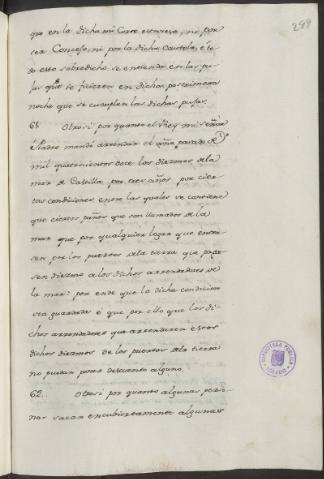 que en la dicha mi Corte estuviere, ni por
ser Concejo, ni por la dicha Cautela, é to
do esto sobredicho se entienda en las pu
jas que se ficieren en dicha postrimera
noche que se cumplen las dichas pujas.
61. Otrosi por quanto el Rey mi señor
é Padre mandó arrendar el año pasado de
mil quatrocientos once los diezmos de la
mar de Castilla por tres años por cier
tas condiciones entre las quales se contiene
que ciertos paños que son llamados de la
mar que por qualquier logar que entra
sen por los puertos de la tierra que paga
sen diezmo a los dichos arrendadores de
la mar: por ende que la dicha condicion
sea guardada é que por ello que los di
chos arrendadores que arrendaren estos
dichos diezmos de los puertos de la tierra
no puedan poner descuento alguno.
62. Otrosi por quanto algunas perso
nas sacan encubiertamente algunas
BIBLIOTECA PUBLICA
TOLEDO